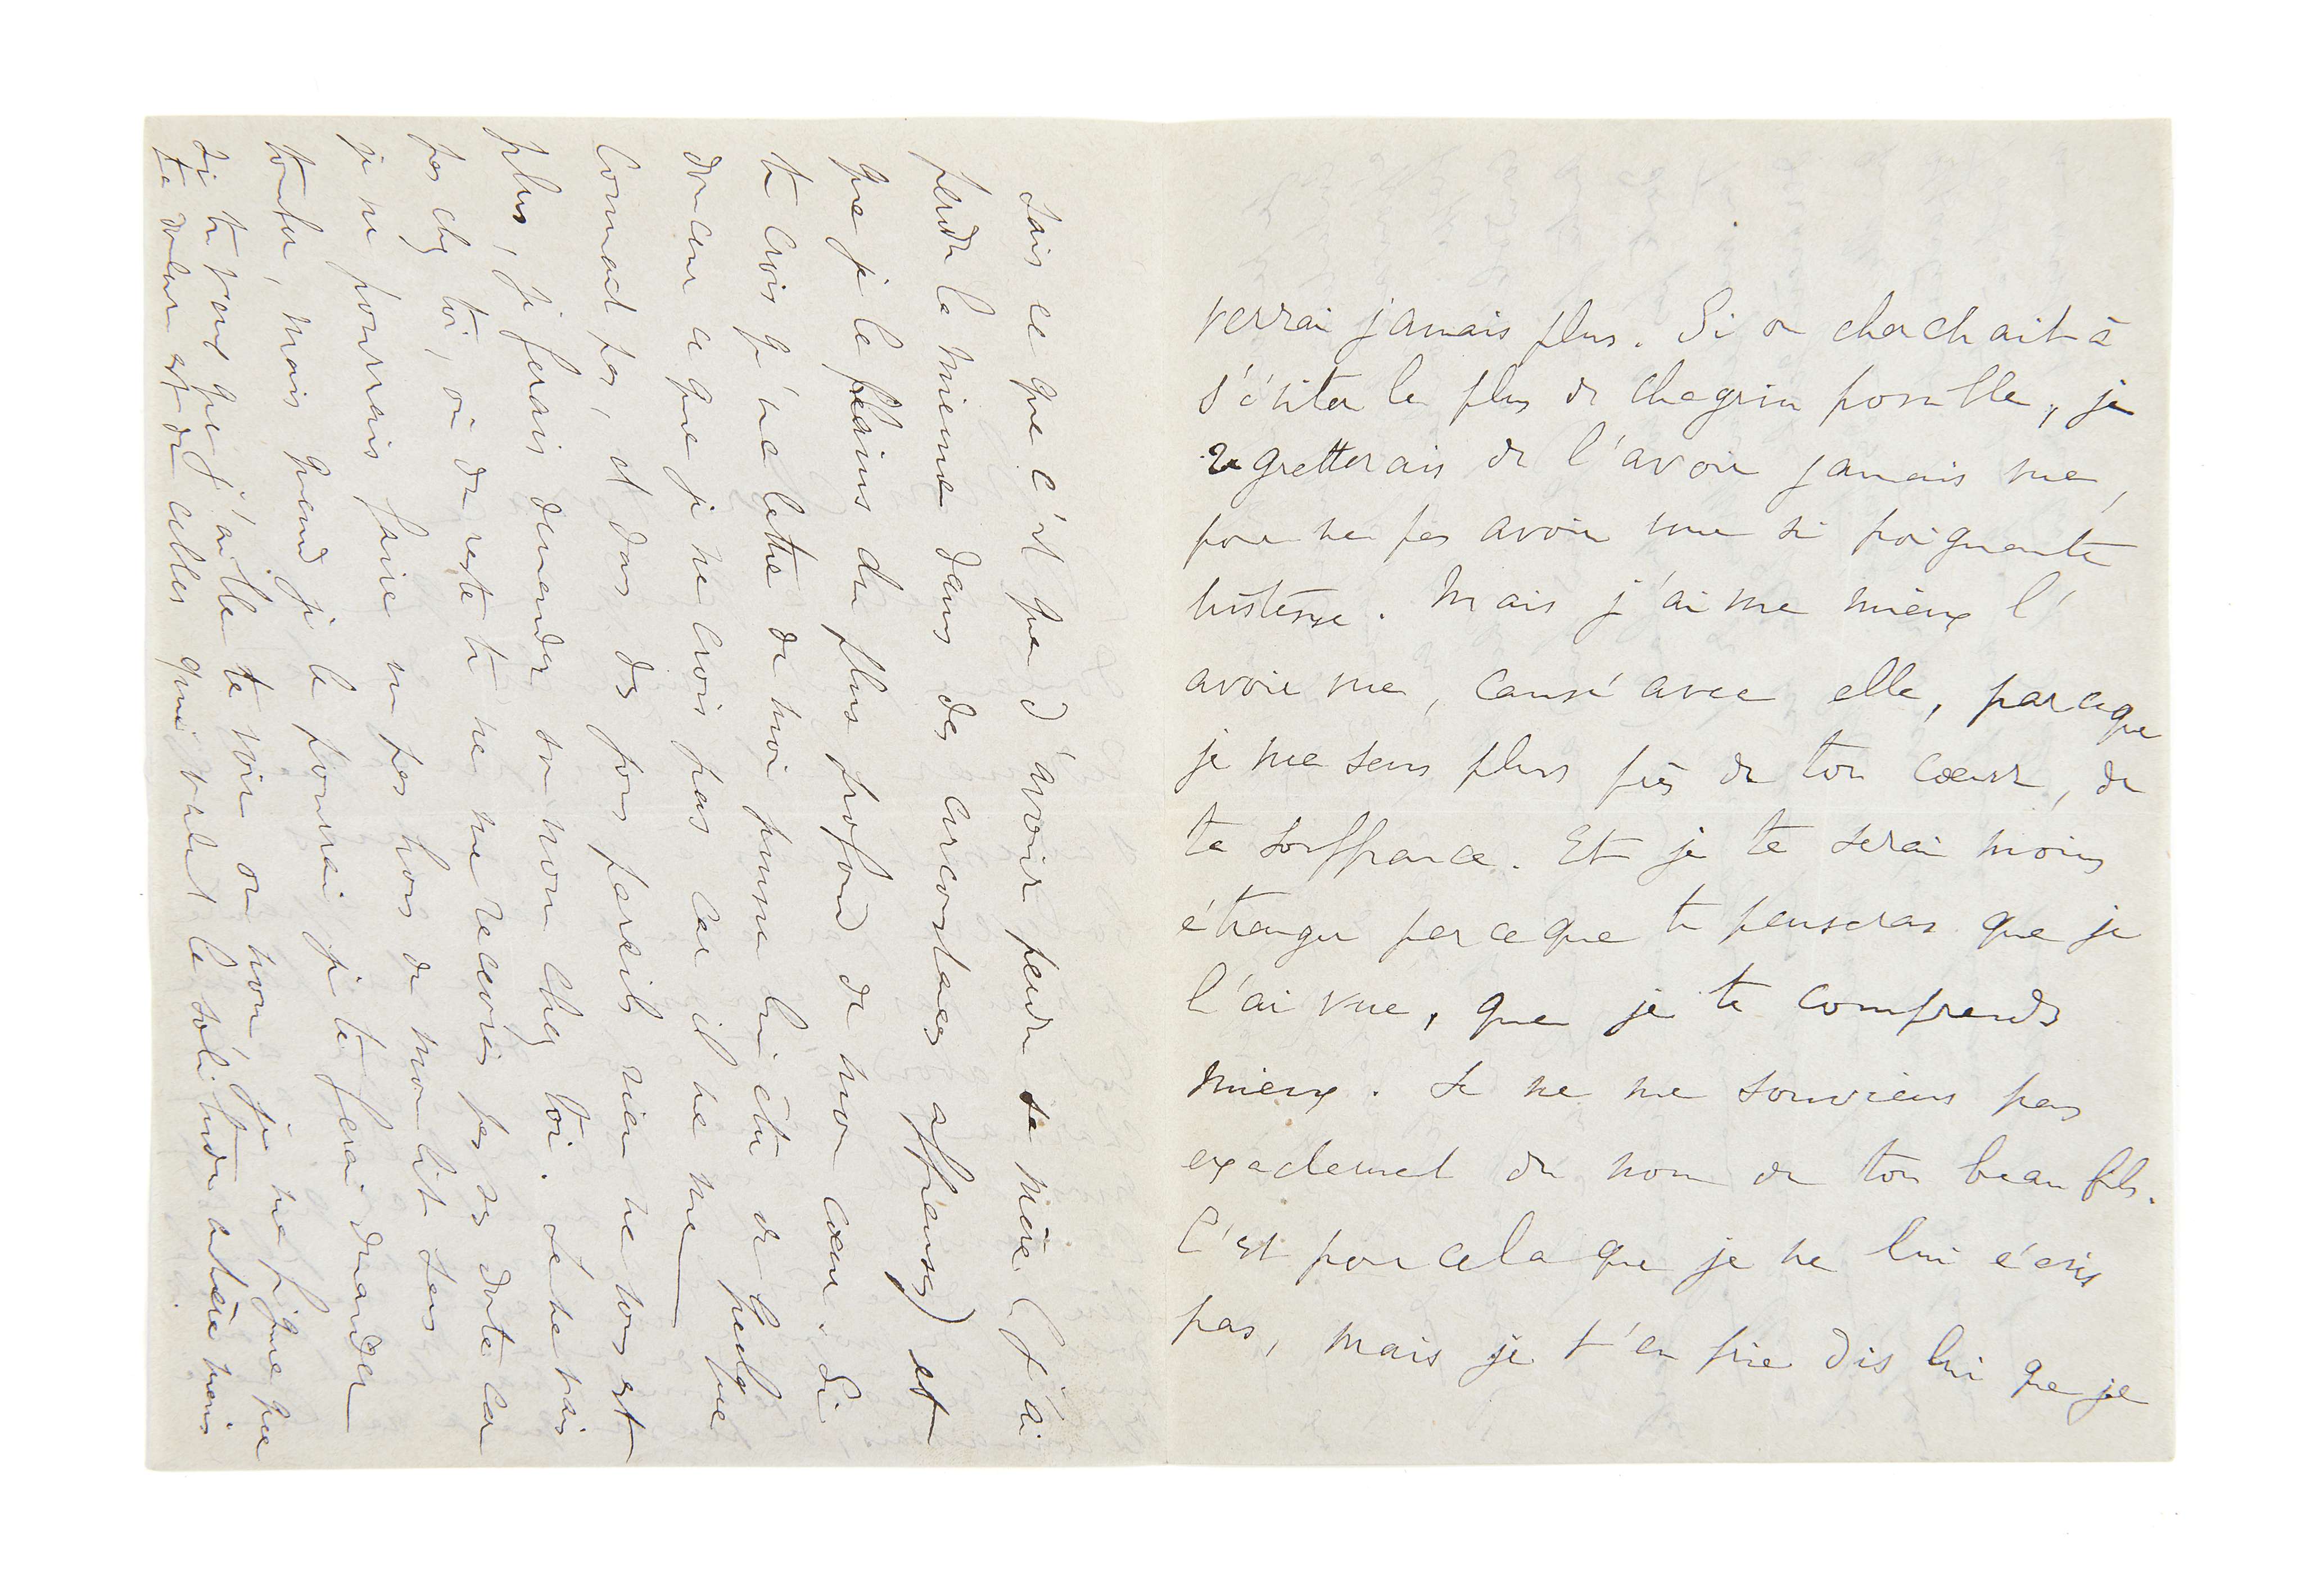 verrai jamais plus. Si on cherchait à
s'éviter le plus de chagrin possible, je
regretterais de l'avoir jamais vue,
pour ne pas avoir une si poignante
tristesse. Mais j'aime mieux l'
avoir vue, causé avec elle, parceque
je me sens plus près de ton cœur, de
ta souffrance. Et je te serai moins
étranger parceque tu penseras que je
l'ai vue, que je te comprends
mieux. Je ne me souviens pas
exactement du nom de ton beau fils.
C'est pour cela que je ne lui écris
pas, mais je t'en prie dis lui que je
sais ce que c'est que d'avoir perdu sa mère (j'ai
perdu la mienne dans des circonstances affreuses) et
que je le plains du plus profond de mon cœur. Si
tu crois qu'une lettre de moi puisse lui être de quelque
douceur ce que je ne crois pas car il ne me
connaît pas, et dans des jours pareils rien ne vous est
plus, je ferais demander son nom chez toi. Je ne vais
pas chez toi, où du reste tu ne me recevrais pas sans doute car
je ne pourrais faire un pas hors de mon lit sans
tomber, mais quand je le pourrai je te ferai demander
si tu veux que j'aille te voir ou non. Je me figure que
ta douleur est de celles qui veulent la solitude entière mais